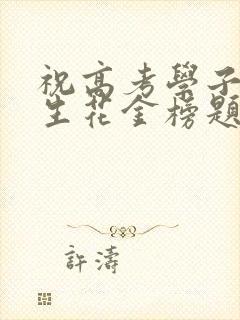 祝高考學子
生花金榜題
許濤